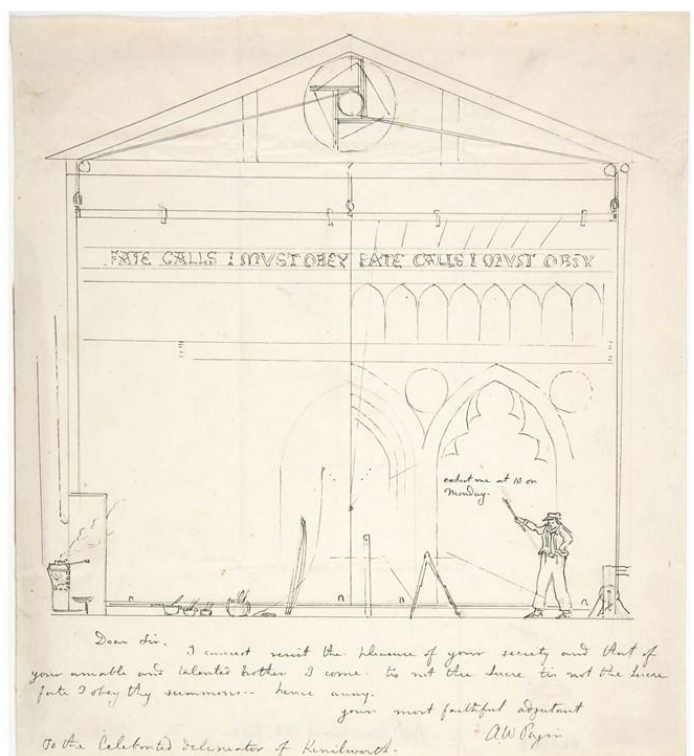 FATE CALLS I MUST OBEY FATE CALLS I MUST OBEY
expect me at 10 on
Monday.
Dear Sir.
I cannot resist the pleasure of your society and that of
your amiable and talented brother I come. tis not the lucre tis not the lucre
fate I obey thy summons.. hence away.
your most faithful adjutant
AW Pugin
To the Celebrated delineator of Kenilworth.